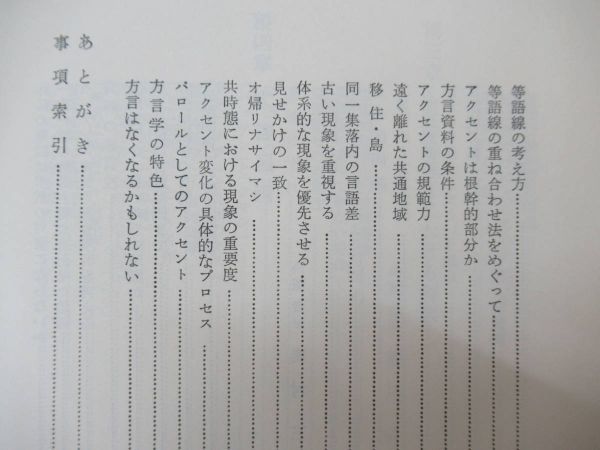 等語線の考え方
等語線の重ね合わせ法をめぐって
アクセントは根幹的部分か
方言資料の条件
アクセントの規範力
遠く離れた共通地域
移住・島
同一集落内の言語差
古い現象を重視する
体系的な現象を優先させる
見せかけの一致
オ帰リナサイマシ
共時態における現象の重要度
アクセント変化の具体的なプロセス
パロールとしてのアクセント
方言学の特色
方言はなくなるかもしれない
あとがき
事項索引